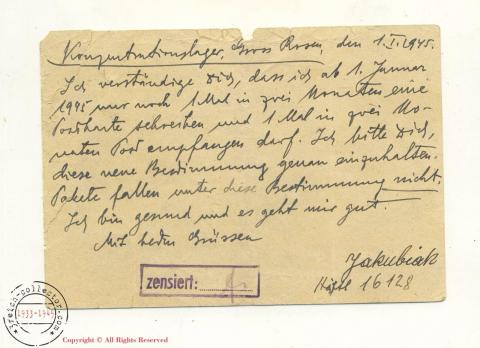 Konzentrationslager, Gross Rosen, den 1.I.1945.
Ich verständige Dich, dass ich ab 1. Januar
1945 nur noch 1 Mal in zwei Monaten eine
Postkarte schreiben und 1 Mal in zwei Mo-
naten Post empfangen darf. Ich bitte Dich,
diese neue Bestimmung genau einzuhalten.
Pakete fallen unter diese Bestimmung nicht.
Ich bin gesund und es geht mir gut.
Mit Grüssen
Jakubiak
16128
zensiert:
3reich-collector.com
1933-1945
Copyright © All Rights Reserved